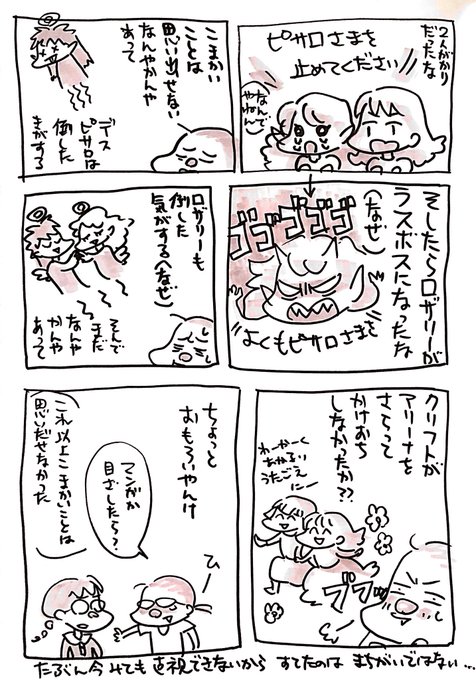 2人がかり
だったな
ピサロさまを
止めてください
なんで
やねん
こまかい
ことは
思い出せない
なんやかんや
あって
デス
ピサロは
倒した
きがする
そしたらロザリーが
ラスボスになったな
(なぜ)
ゴゴゴゴゴ
よくもピサロさまを
ロザリーも
倒した
気がする(なぜ)
そんで
まだ
なんや
かんや
あって
クリフトが
アリーナを
さらって
かけおち
しなかったか??
わーかーく
あかるい
うたごえ
にー
ブブッ
ちょっと
おもろいやんけ
マンガか
目ざしたら?
ひー
これ以上こまかいことは
思いだせなかった
たぶん今みても直視できないから すてたのは まちがいではない…